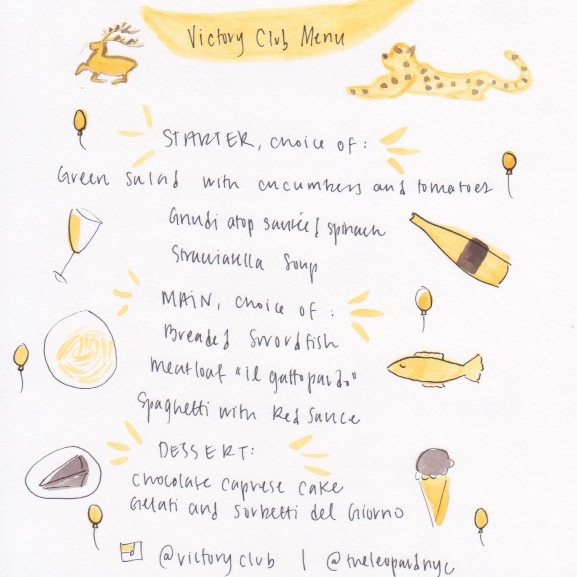 Victory Club Menu
STARTER, choice of:
Green Salad with cucumbers and tomatoes
Gnudi atop sautéed spinach
Stracciatella Soup
MAIN, choice of:
Breaded Swordfish
Meatloaf "il gattopardo"
Spaghetti with Red Sauce
DESSERT:
Chocolate Caprese Cake
Gelati and Sorbetti del Giorno
@victoryclub | @theleopardnyc